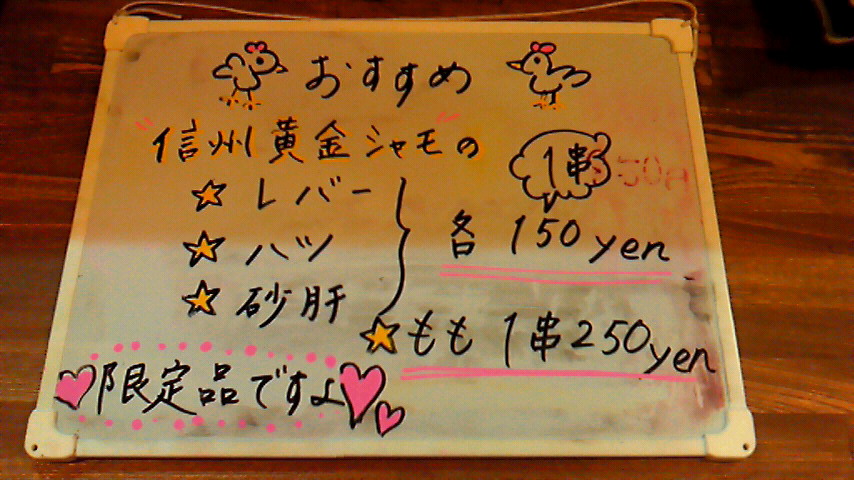 おすすめ
"信州黄金シャモ"の
1串
レバー
ハツ
砂肝
各 150yen
もも 1串250yen
限定品ですよ